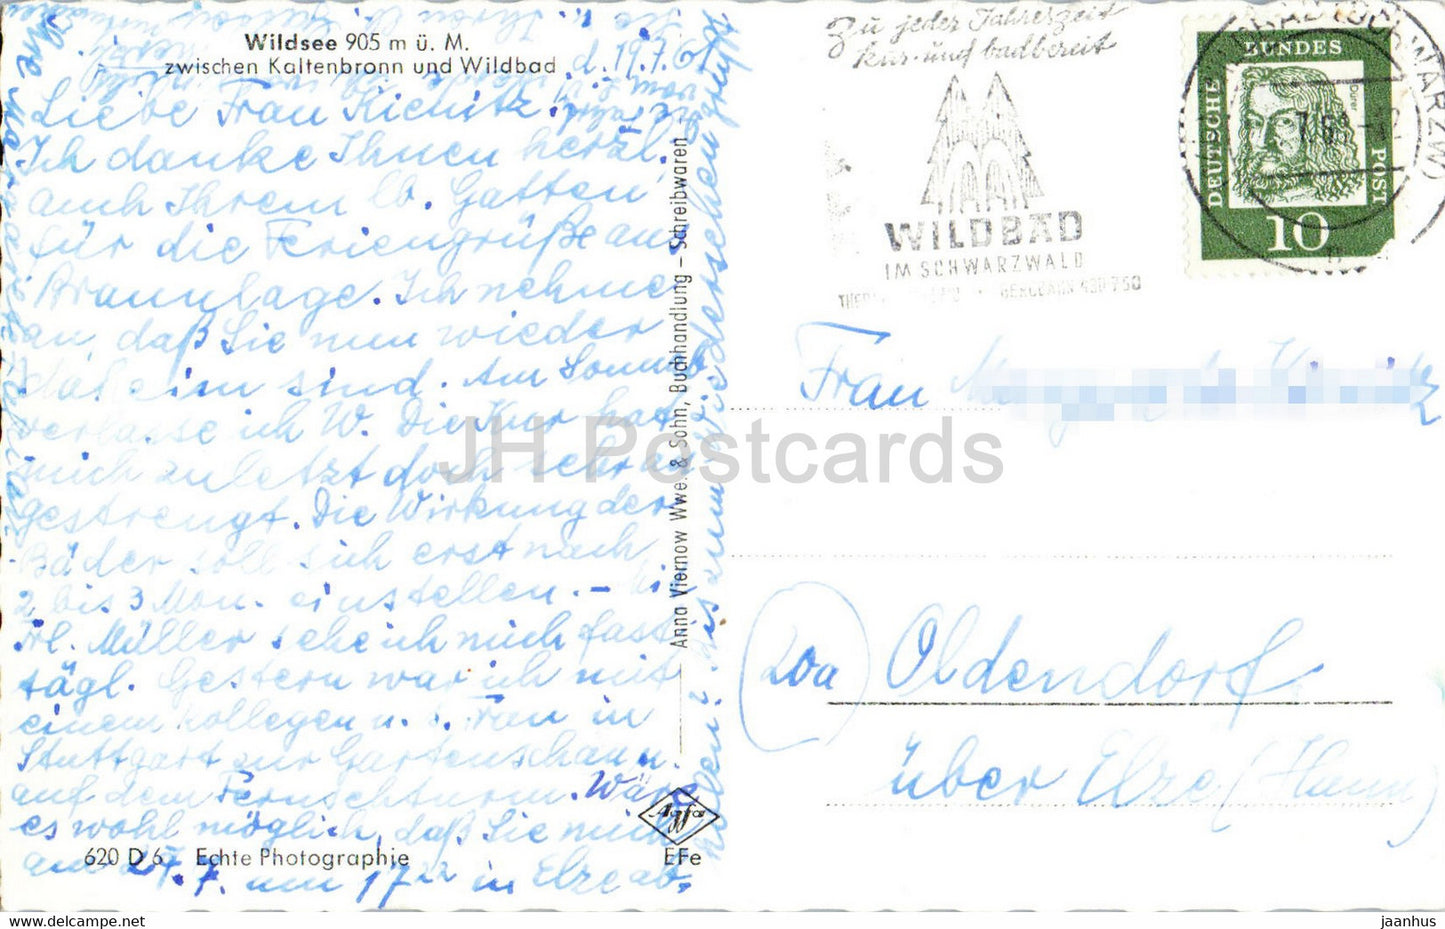 Wildsee 905 m ü. M.
zwischen Kaltenbronn und Wildbad
d. 19.7.61
Liebe Frau
Ich danke Ihnen herzl.
auch Ihrem lb. Gatten
für die Feriengrüße aus
Braunlage. Ich nehme
an, daß Sie nun wieder
daheim sind. Am Sonnab.
verlasse ich W. Die Kur hat
mich zuletzt doch sehr
gestrengt. Die Wirkung der
Bäder soll sich erst nach
2 bis 3 Mon. einstellen. -
Frl. Müller sehe ich noch fast
tägl. Gestern war ich mit
einem Kollegen u. s. Frau in
Stuttgart zur Gartenschau u.
auf dem Fernsehturm. Wäre
es wohl möglich, daß Sie mich
am 24.7. um 17 22 in Elze ab-
holen? Bis zum Wiedersehen grüßt
620 D 6 Echte Photographie
Agfa
EFe
Anna Viernow Wwe. & Sohn, Buchhandlung – Schreibwaren
Zu jeder Jahreszeit
kur- und badbereit
WILDBAD
IM SCHWARZWALD
BERGBAHN 430-750
DEUTSCHE
BUNDES
POST
10
Frau
20a
Oldendorf
über Elze (Hann)
JH Postcards
jaanhus